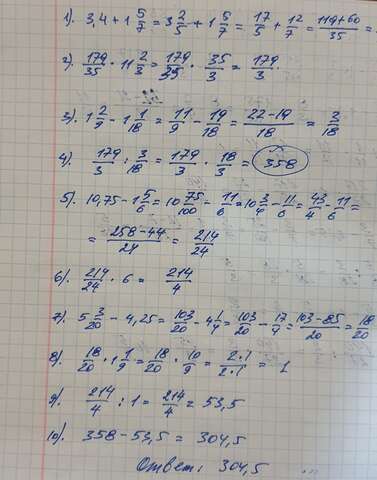 1). 3,4 + 1 5/7 = 3 2/5 + 1 5/7 = 17/5 + 12/7 = 119+60/35 =
2). 179/35 · 11 2/3 = 179/35 · 35/3 = 179/3.
3). 1 2/9 - 1 1/18 = 11/9 - 19/18 = 22-19/18 = 3/18
4). 179/3 : 3/18 = 179/3 · 18/3 = 358
5). 10,75 - 1 5/6 = 10 75/100 - 11/6 = 10 3/4 - 11/6 = 43/4 - 11/6 =
= 258-44/24 = 214/24
6). 214/24 · 6 = 214/4
7). 5 3/20 - 4,25 = 103/20 - 4 1/4 = 103/20 - 17/4 = 103-85/20 = 18/20
8). 18/20 · 1 1/9 = 18/20 · 10/9 = 2·1/2·1 = 1
9). 214/4 : 1 = 214/4 = 53,5
10). 358 - 53,5 = 304,5
Ответ: 304,5